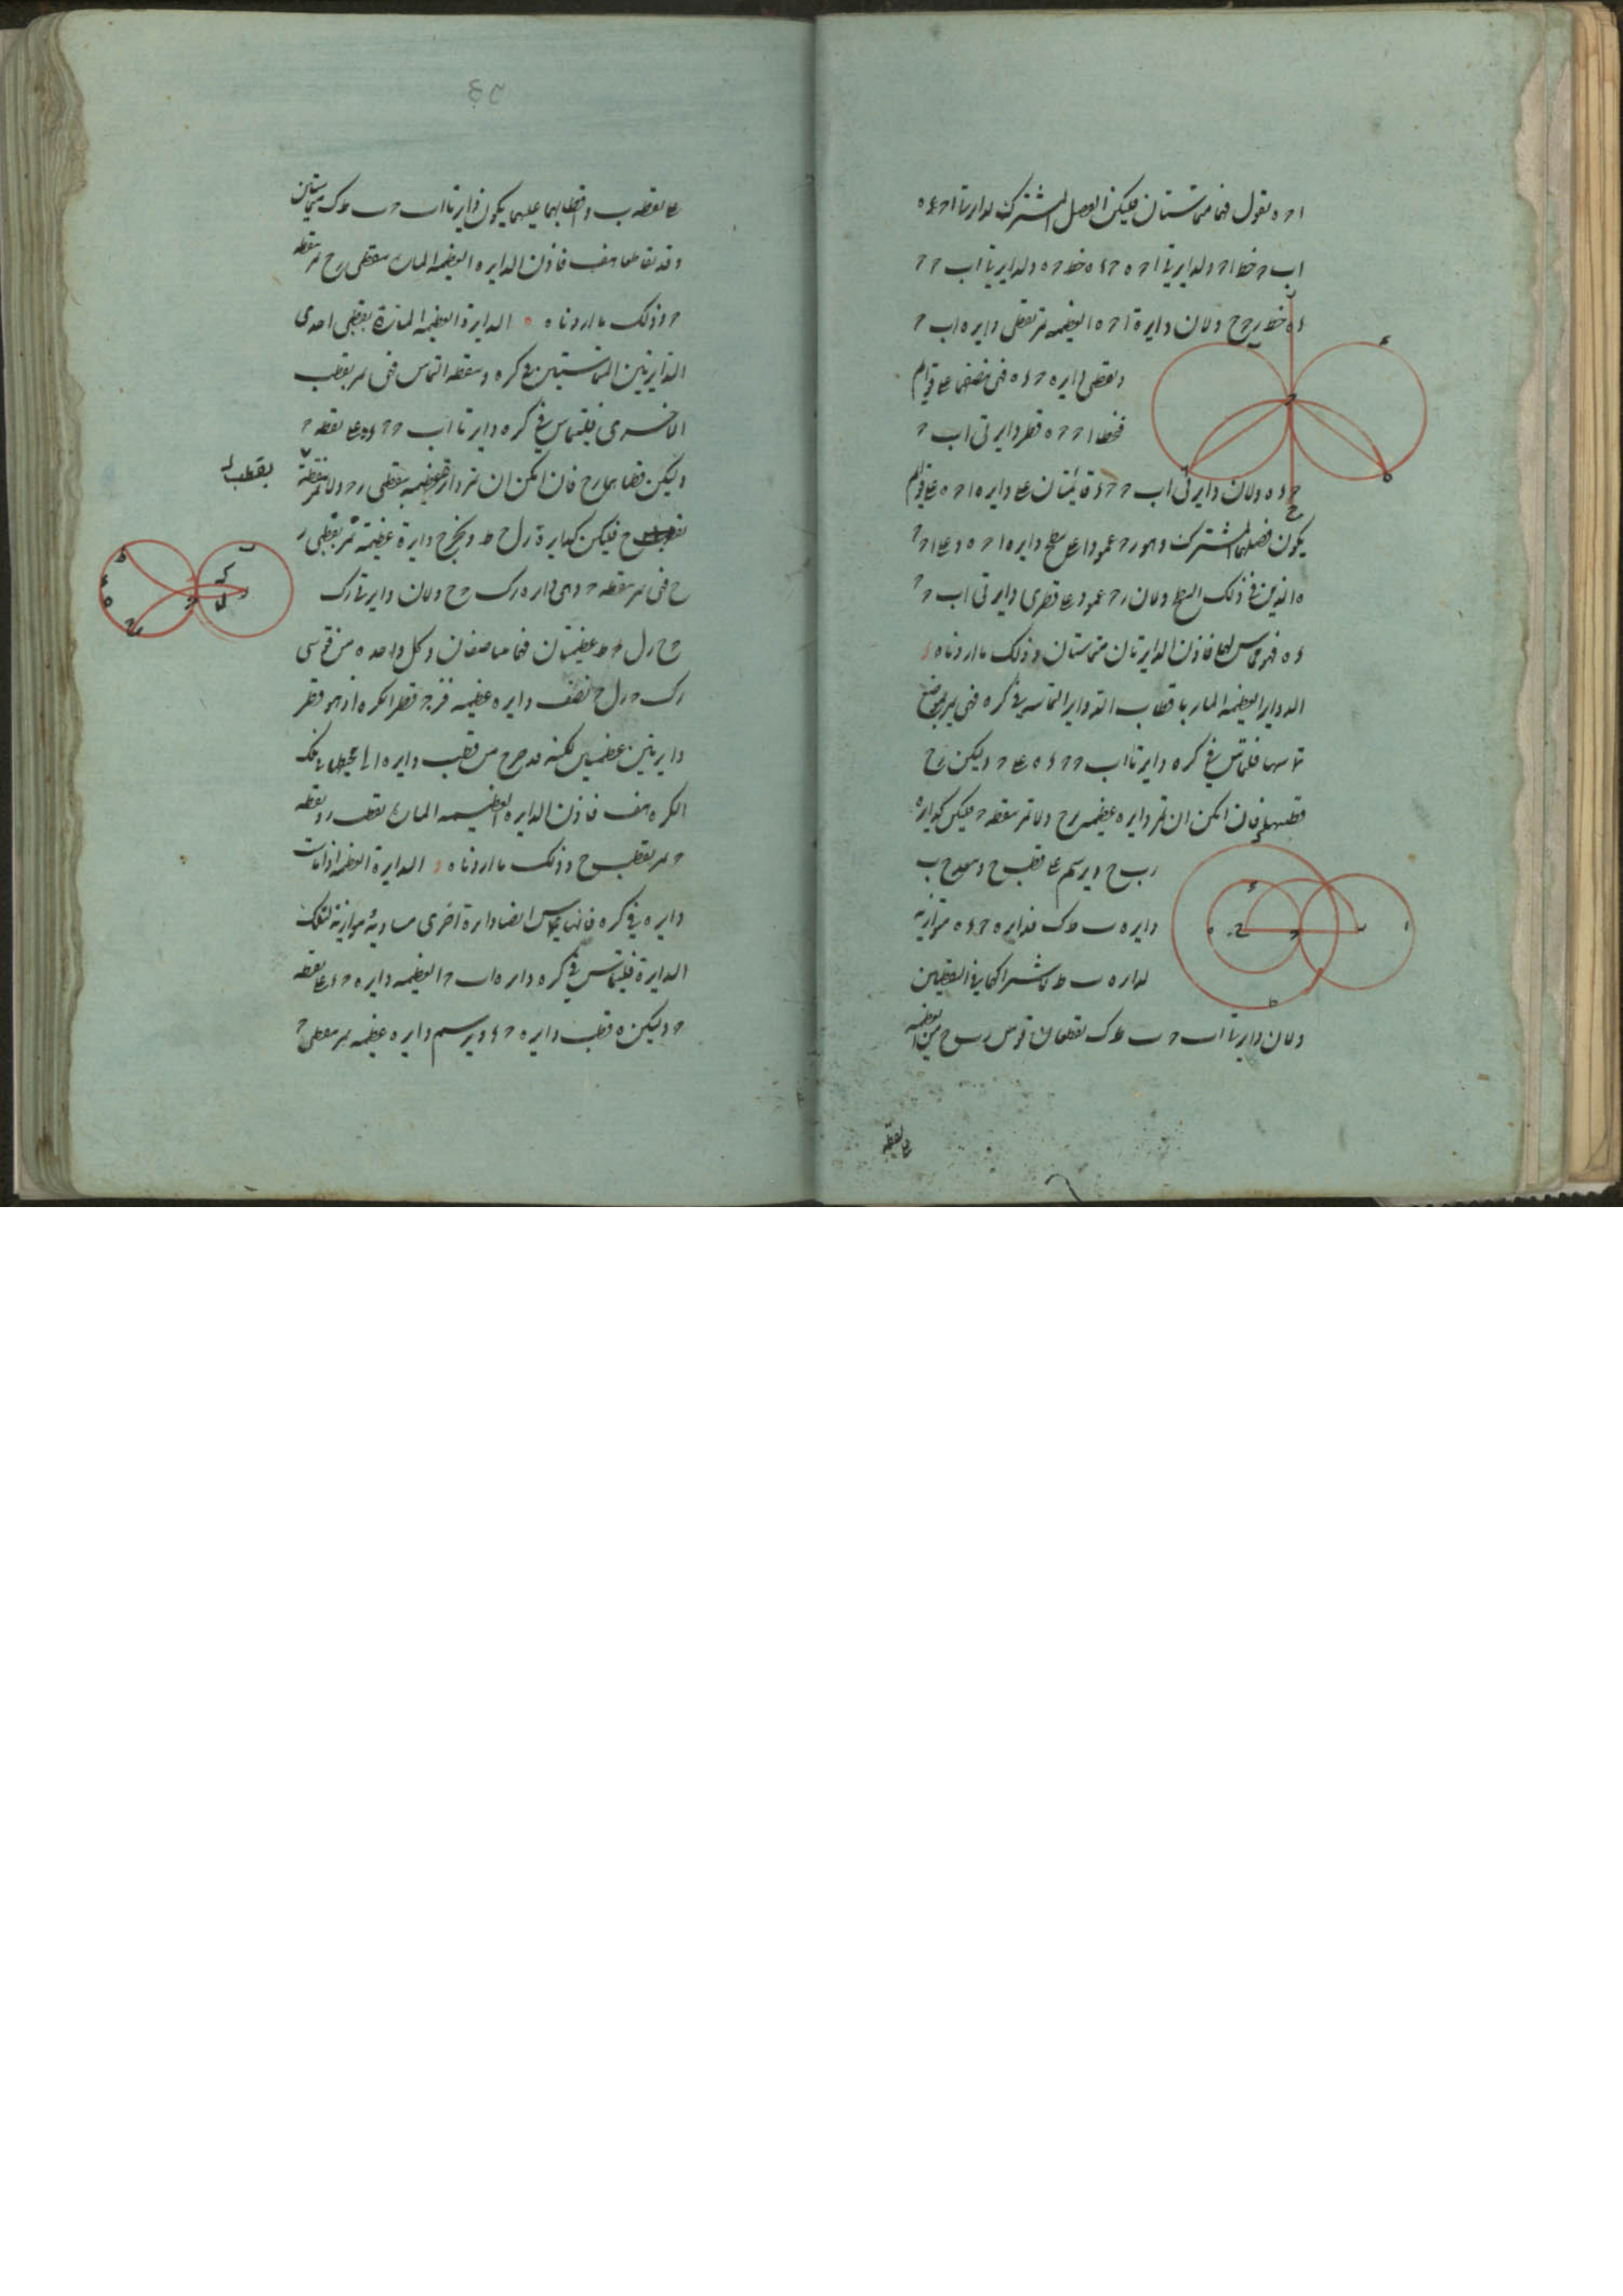 ا ح ه نقول فهما متماستان فليكن الفصل المشترك لدايرتا ا ح ه
اب ح خط ا ح ولدايرتا ا ح ه ح د ه خط ح ه ولدايرتا اب ح ح
د ه خط ر ح ح ولان دايرة ا ح ه العظيمه تمر بقطبى دايره اب ح
وبقطبى دايره ح د ه فهى تنصفهما على قوايم
فخطا ا ح ح ه قطر دايرتى اب ح
ح د ه ولان دايرتى اب ح ح د ه قائمتان على دايره ا ح ه على قوايم
يكون فصلهما المشترك وهو ر ح عمودا على سطح دايره ا ح ه وعلى ا ح ح
ه الذين فى ذلك السطح ولان ر ح عمود على قطرى دايرتى اب ح ح
د ه فهو مماس لهما فاذن الدايرتان متماستان وذلك ما اردناه
الدواير العظيمه الماره باقطاب الدواير المتماسه فى كره فهى تمر بموضع
تماسها فليتماس فى كره دايرتا اب ح ح د ه على ح وليكن ر ح
قطبيهما فان امكن ان تمر دايره عظيمه بر ح ولا تمر بنقطه ح فليكن كدايرة
ر ب ح ويرسم على قطب ح وببعد ح ب
دايره ب ط ك فدايره ح د ه موازيه
لدايره ب ط لاشتراكهما فى القطبين
ولان دايرتا اب ح ب ط ك يقطعان قوس ر ب ح من العظيمه
على نقطه
على نقطه ب واقطابهما عليهما يكون دايرتا اب ح ب ط ك متماستين
وقد تقاطعا هف فاذن الدايره العظيمه الماره بنقطتى ر ح تمر بنقطه
ح وذلك ما اردناه الدايرة العظيمه المارة بقطبى احدى
الدايرتين المتماستين فى كره وبنقطه التماس فهى تمر بقطب
الاخرى فليتماس فى كره دايرتا اب ح ح د ه على نقطه ح
وليكن قطباهما ر ح فان امكن ان تمر دايرة عظيمه بنقطتى ر ح ولا تمر بنقطة
بقطب
ح فليكن كدايرة ر ل ح ط ونخرج دايرة عظيمة تمر بقطبى ر
ح فهى تمر بنقطه ح وهى دايره ر ك ح ح ولان دايرتى ر ك
ح ح ر ل ح ط عظيمتان فهما متناصفان وكل واحده من قوسى
ر ك ح ر ل ح نصف دايره عظيمه فر ح قطر الكره اذ هو قطر
دايرتين عظيمتين لكنه قد خرج من قطب دايره الى محيط تلك
الكره هف فاذن الدايره العظيمه الماره بقطب ر وبنقطه
ح تمر بقطب ح وذلك ما اردناه الدايرة العظيمه اذا ماست
دايره فى كره فانها تماس ايضا دايرة اخرى مساوية موازية لتلك
الدايرة فليتماس فى كره دايره اب ح العظيمه دايره ح د على نقطه
ح وليكن ه قطب دايره ح د ويرسم دايره عظيمه تمر بنقطتى ح